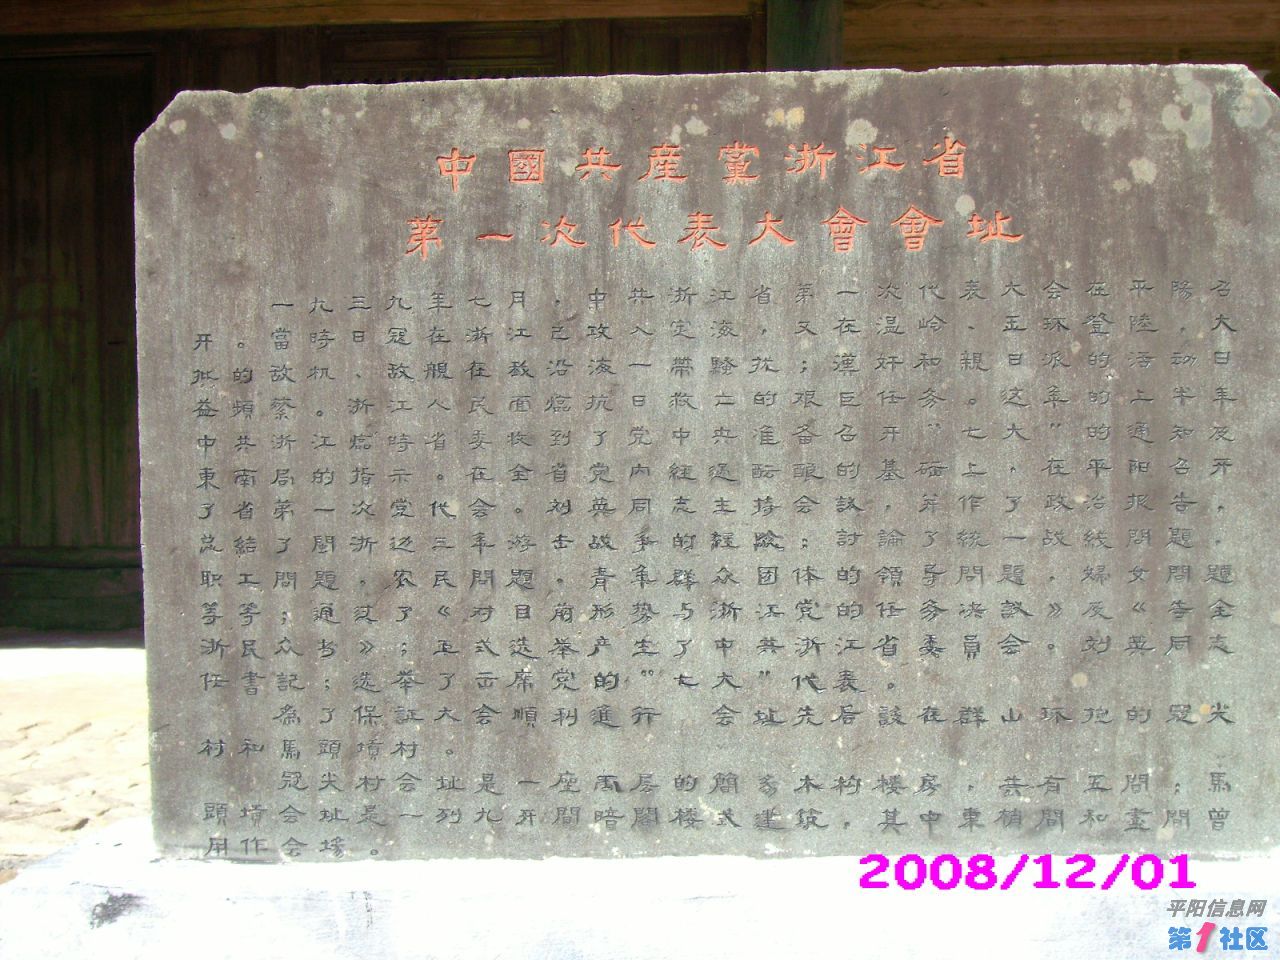 中國共産黨浙江省
第一次代表大會會址
一九三九年七月，中共浙江省第一次代表大会在平陽召
开。當時日寇在浙江已攻入定海，又在温岭、玉环登陸，大
批的敌机、敌舰在沿海一帶騷扰；漢奸和親日派的活动日
益頻繁。浙江人民面临抗日救亡的艰巨任务。这年的上半年
中共浙江省委收到了党中央准备召开“七大”的通知及
東南局的指示。在全省党内經过酝酿的基础上，在平阳召开
了省第一次党代会。刘英同志主持会議，并作了政治报告，
总結了閩浙边三年游击战争的經驗；討論了統一战线問題、
职工問題，农民問題、青年群众团体的領导問題、婦女問題
等等；通过了《对目前形势与浙江党的任务》《
浙民众書》；正式选举产生了中共浙江省委員会。刘英同志
任書記；选举了出席党的“七大”代表。
為了保証大会順利進行，会址先后設在群山环抱的冠尖
村和馬頭墳村。
冠尖村会址是一座两層的簡易木构楼房，共有五間；馬
頭墳会址是一列九开間暗閣楼式建筑，其中東梢間和畫間曾
用作会場。
2008/12/01
平阳信息网
第1社区